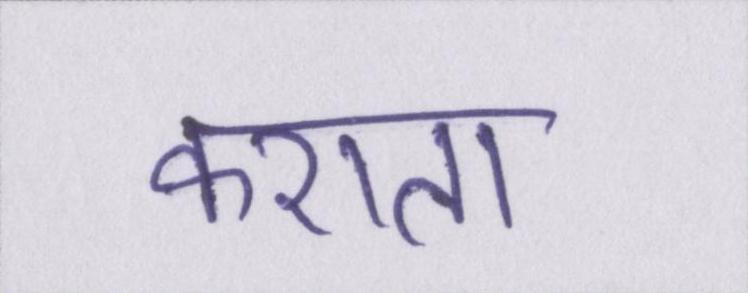 कराता